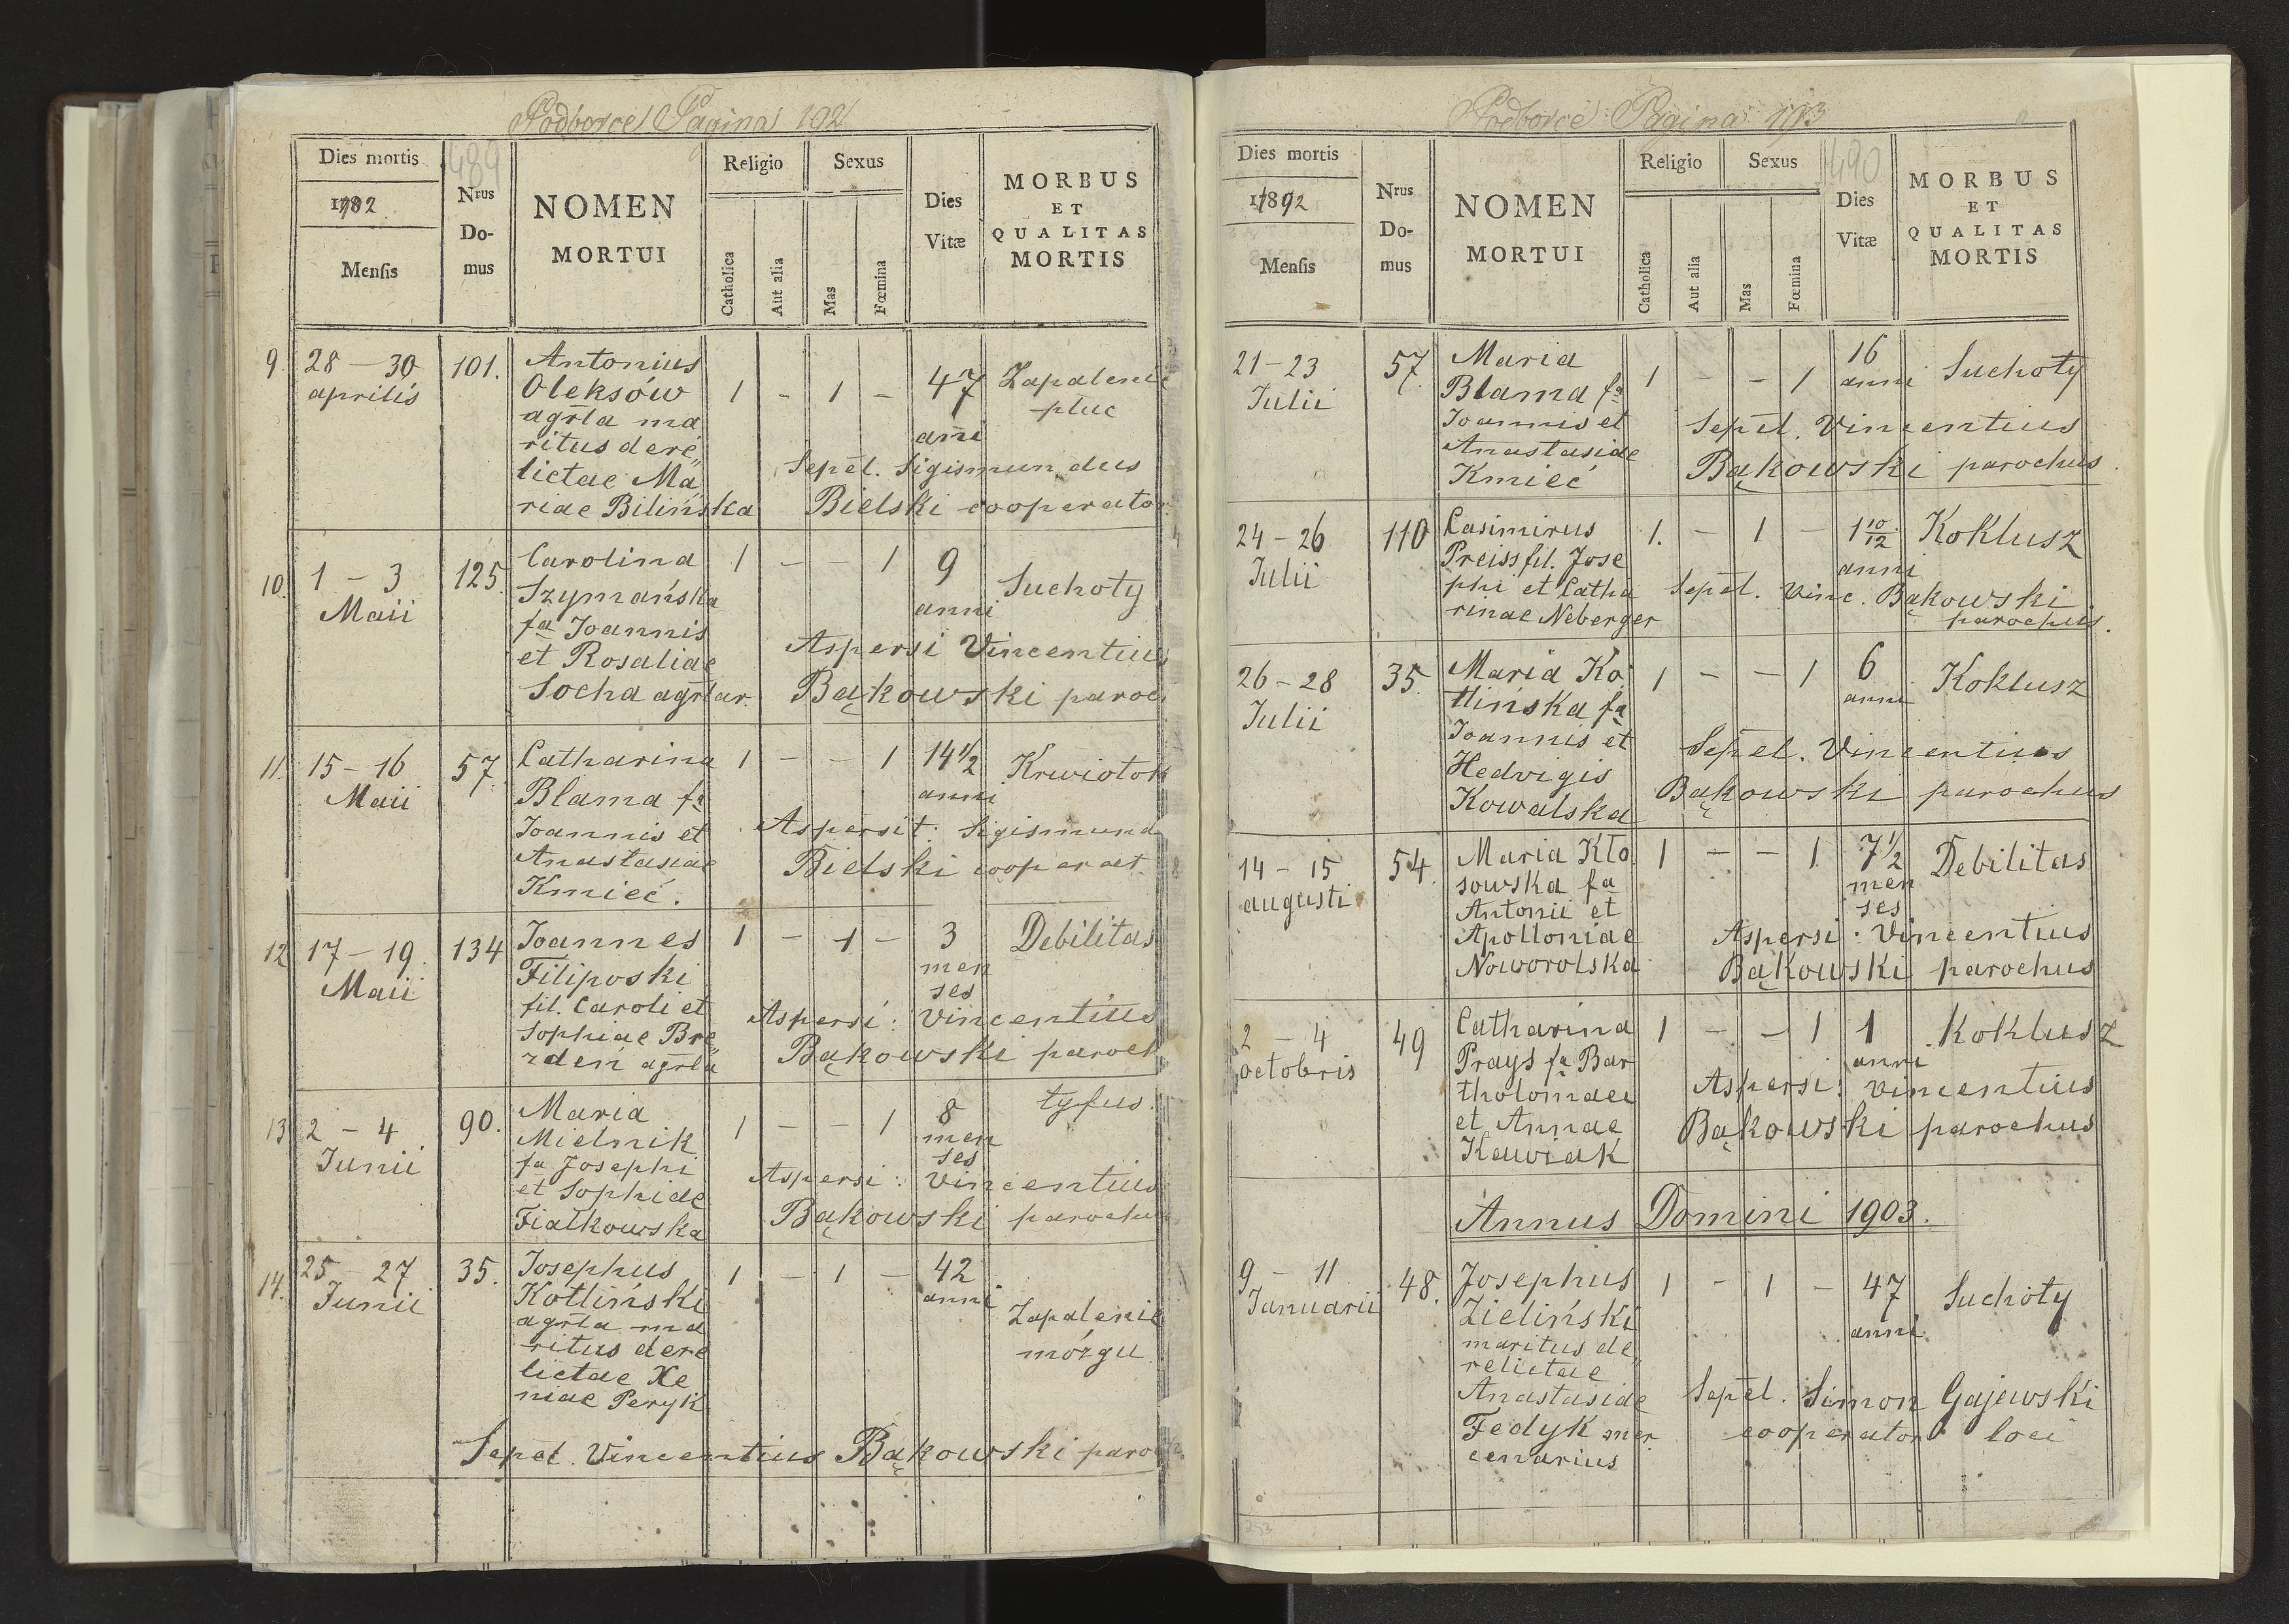 Podborce Pagina 192
489
Dies mortis
1892
Mensis
Nrus Domus
NOMEN
MORTUI
Religio
Catholica
Aut alia
Sexus
Mas
Fœmina
Dies
Vitæ
MORBUS
ET
QUALITAS
MORTIS
9. 28 – 30 101. Antonius 1 – 1 – 47 Zapalenie
aprilis Oleksów płuc
agrla ma anni
ritus dere
lictae Ma Sepel. Sigismundus
riae Bilińska Bielski cooperator
10. 1 – 3 125. Carolina 1 – – 1 9
Maii Szymańska anni Suchoty
fa Joannis
et Rosaliae Aspersi Vincentius
Socha agrlar. Bąkowski paroc
11. 15 – 16 57. Catharina 1 – – 1 14 1/2 Krwiotok
Maii Blama fa anni
Joannis et Aspersit: Sigismund
Anastasiae Bielski cooperat.
Kmieć.
12 17 – 19. 134 Joannes 1 – 1 – 3 Debilitas
Maii Filiposki men
fil. Caroli et ses
Sophiae Bre Aspersi: Vincentius
zdeń agrla Bąkowski paroch
13 2 – 4. 90. Maria 1 – – 1 8 tyfus.
Junii Mielnik men
fa Josephi ses
et Sophiae Aspersi: Vincentius
Fiałkowska Bąkowski parochu
14. 25 – 27 35. Josephus 1 – 1 – 42
Junii Kotliński anni
agrla ma Zapalenie
ritus dere mózgu
lictae Xe
niae Peryk
Sepel. Vincentius Bąkowski paroch
Podborce Pagina 193
490
Dies mortis
1892
Mensis
Nrus Domus
NOMEN
MORTUI
Religio
Catholica
Aut alia
Sexus
Mas
Fœmina
Dies
Vitæ
MORBUS
ET
QUALITAS
MORTIS
21 – 23 57. Maria 1 – – 1 16 Suchoty
Julii Blama fa anni
Joannis et Sepel. Vincentius
Anastasiae Bąkowski parochus.
Kmieć
24 – 26 110 Casimirus 1. – 1 – 1 10/12 Koklusz
Julii Preiss fil. Jose anni
phi et Catha Sepel. Vinc. Bąkowski
rinae Neberger parochus.
26 – 28 35. Maria Ko 1 – – 1 6 Koklusz
Julii tlińska fa anni
Joannis et Sepel. Vincentius
Hedvigis Bąkowski parochus
Kowalska
14 – 15 54. Maria Kło 1 – – 1 7 1/2 Debilitas
augusti sowska fa men
Antonii et ses
Apolloniae Aspersi: Vincentius
Noworolska Bąkowski parochus
2 – 4 49 Catharina 1 – – 1 1 Koklusz
octobris Prays fa Bar anni
tholomaei Aspersi: Vincentius
et Annae Bąkowski parochus
Kawiak
Annus Domini 1903.
9 – 11 48. Josephus 1 – 1 – 47 Suchoty
Januarii Zieliński anni
maritus de
relictae
Anastasiae Sepel. Simon Gajewski
Fedyk mer cooperator loci
cenarius
253